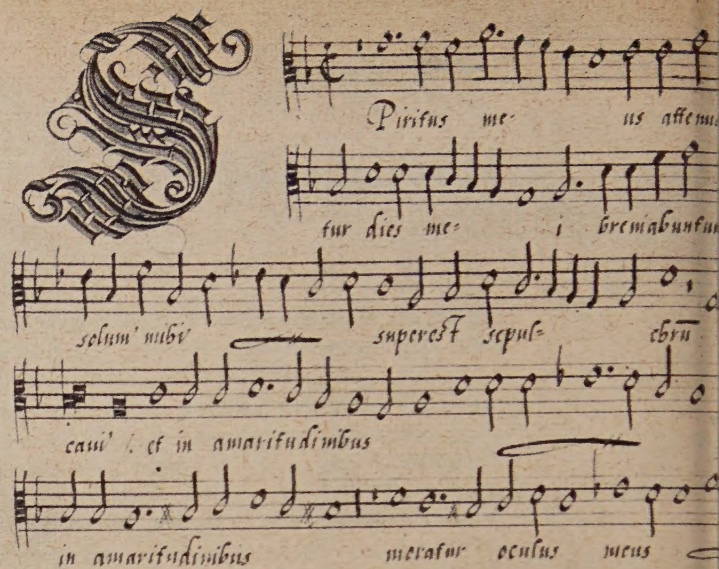 SPiritus me- us attenu
tur dies me- i breuiabuntur
solum' mihi superest sepul- chrū
caui' . et in amaritudinibus
in amaritudinibus moratur oculus meus